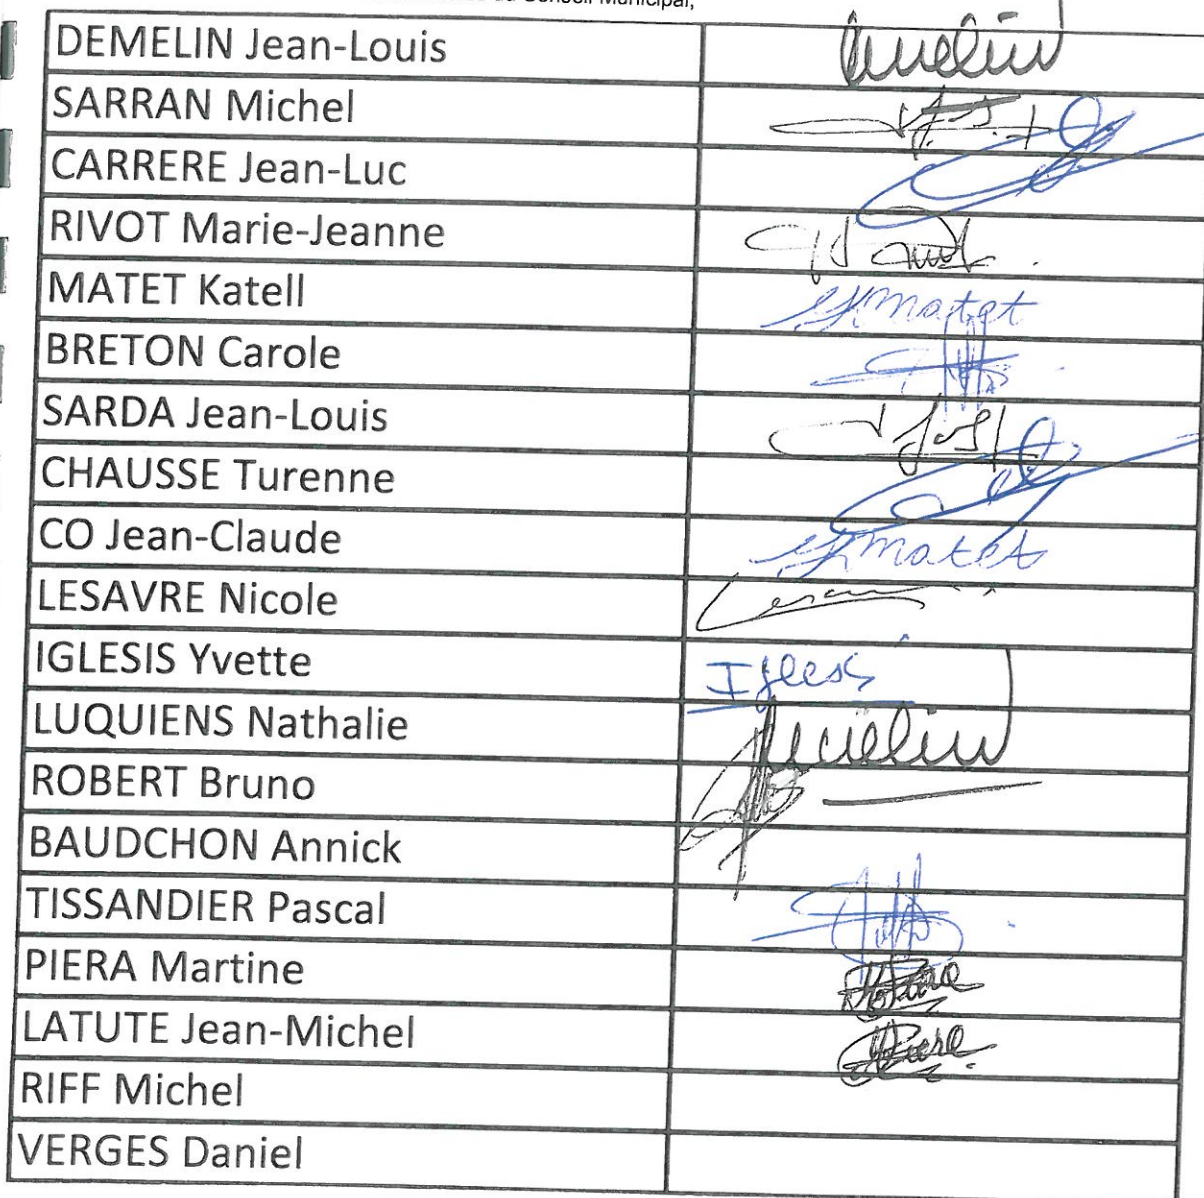 du Conseil Municipal,
DEMELIN Jean-Louis Demelin
SARRAN Michel
CARRERE Jean-Luc
RIVOT Marie-Jeanne
MATET Katell Matet
BRETON Carole
SARDA Jean-Louis
CHAUSSE Turenne
CO Jean-Claude Matet
LESAVRE Nicole
IGLESIS Yvette Igless
LUQUIENS Nathalie Demelin
ROBERT Bruno
BAUDCHON Annick
TISSANDIER Pascal
PIERA Martine
LATUTE Jean-Michel
RIFF Michel
VERGES Daniel